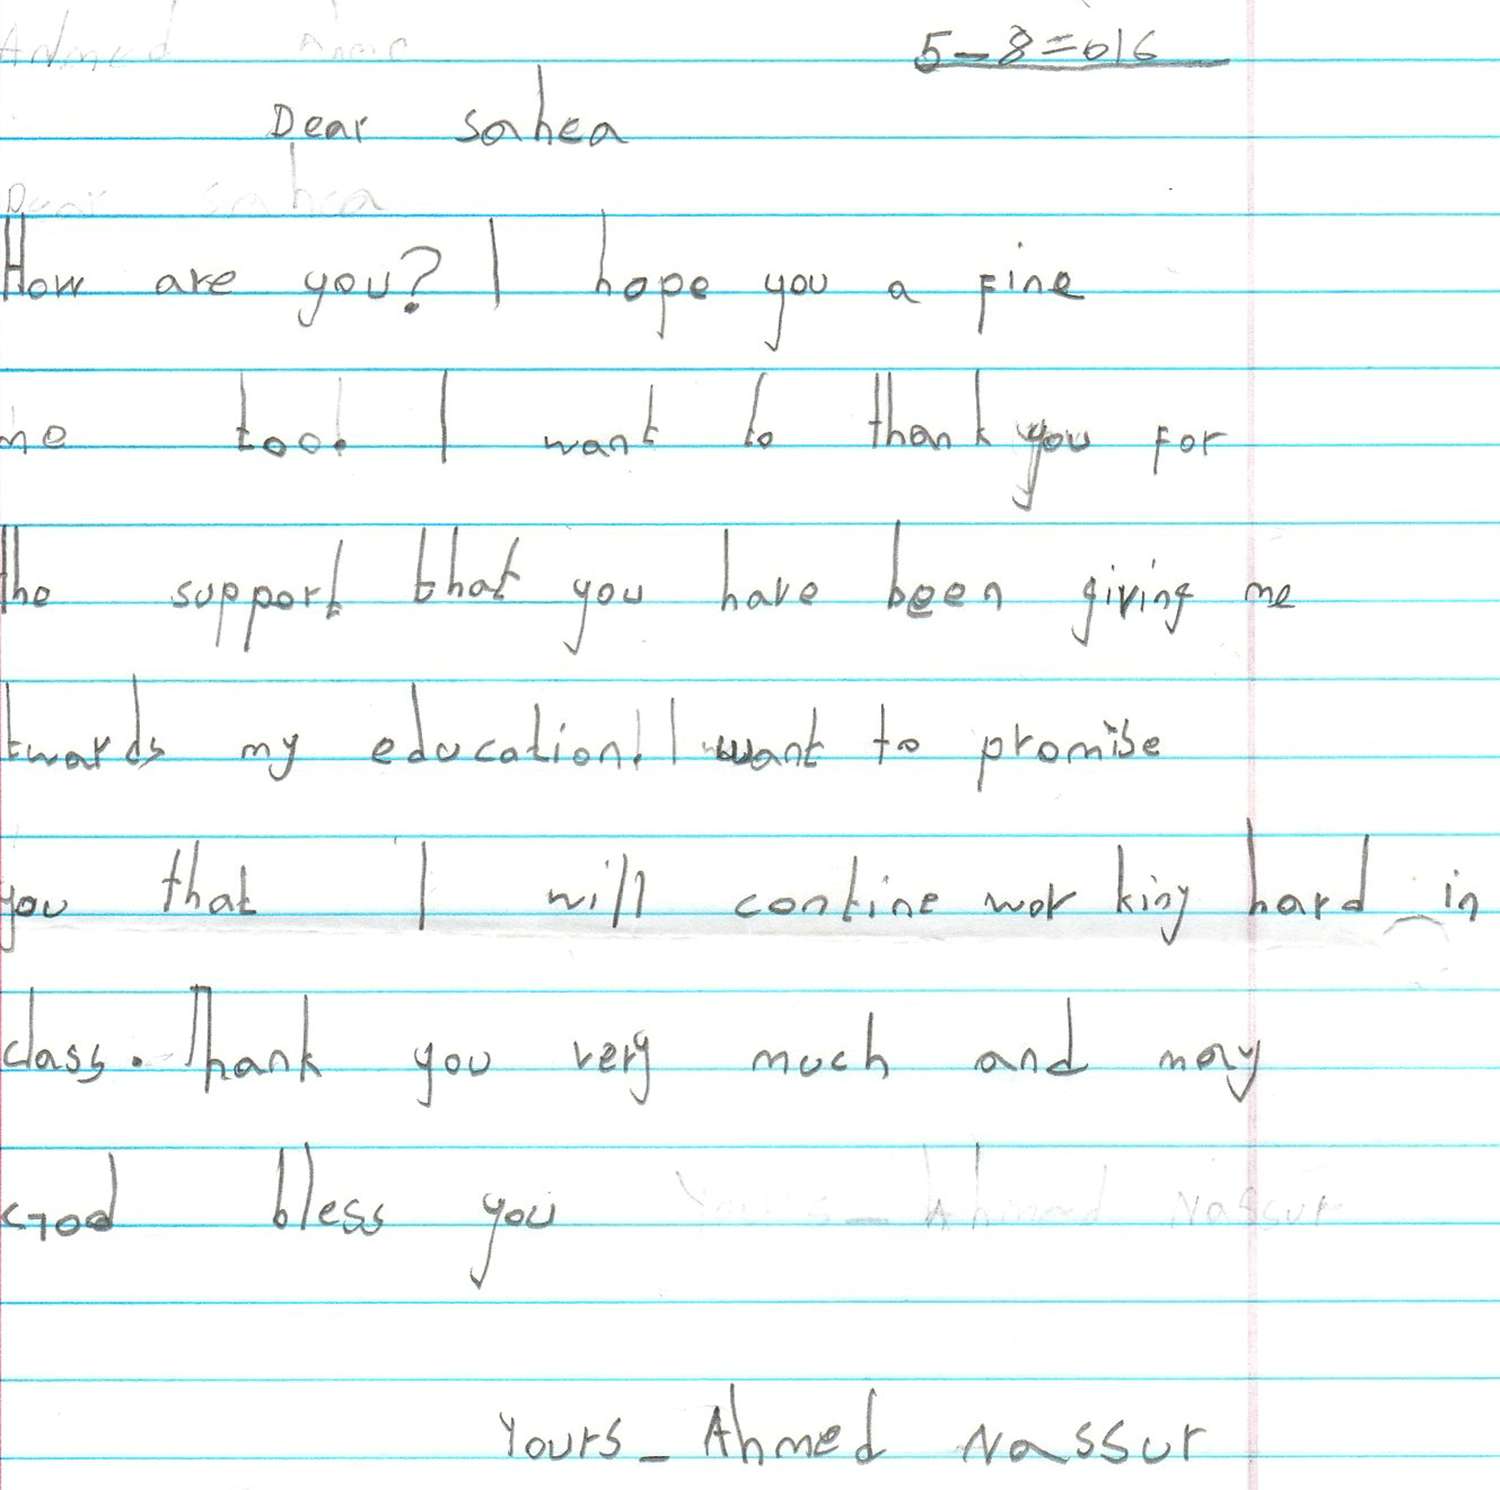 5-8=016
Dear sahea
How are you? I hope you a fine
me too. I want to thank you for
the support that you have been giving me
twards my education. I want to promise
you that I will contine wor king hard in
class. Thank you very much and may
God bless you
Yours - Ahmed Nassur
Yours - Ahmed Nassur